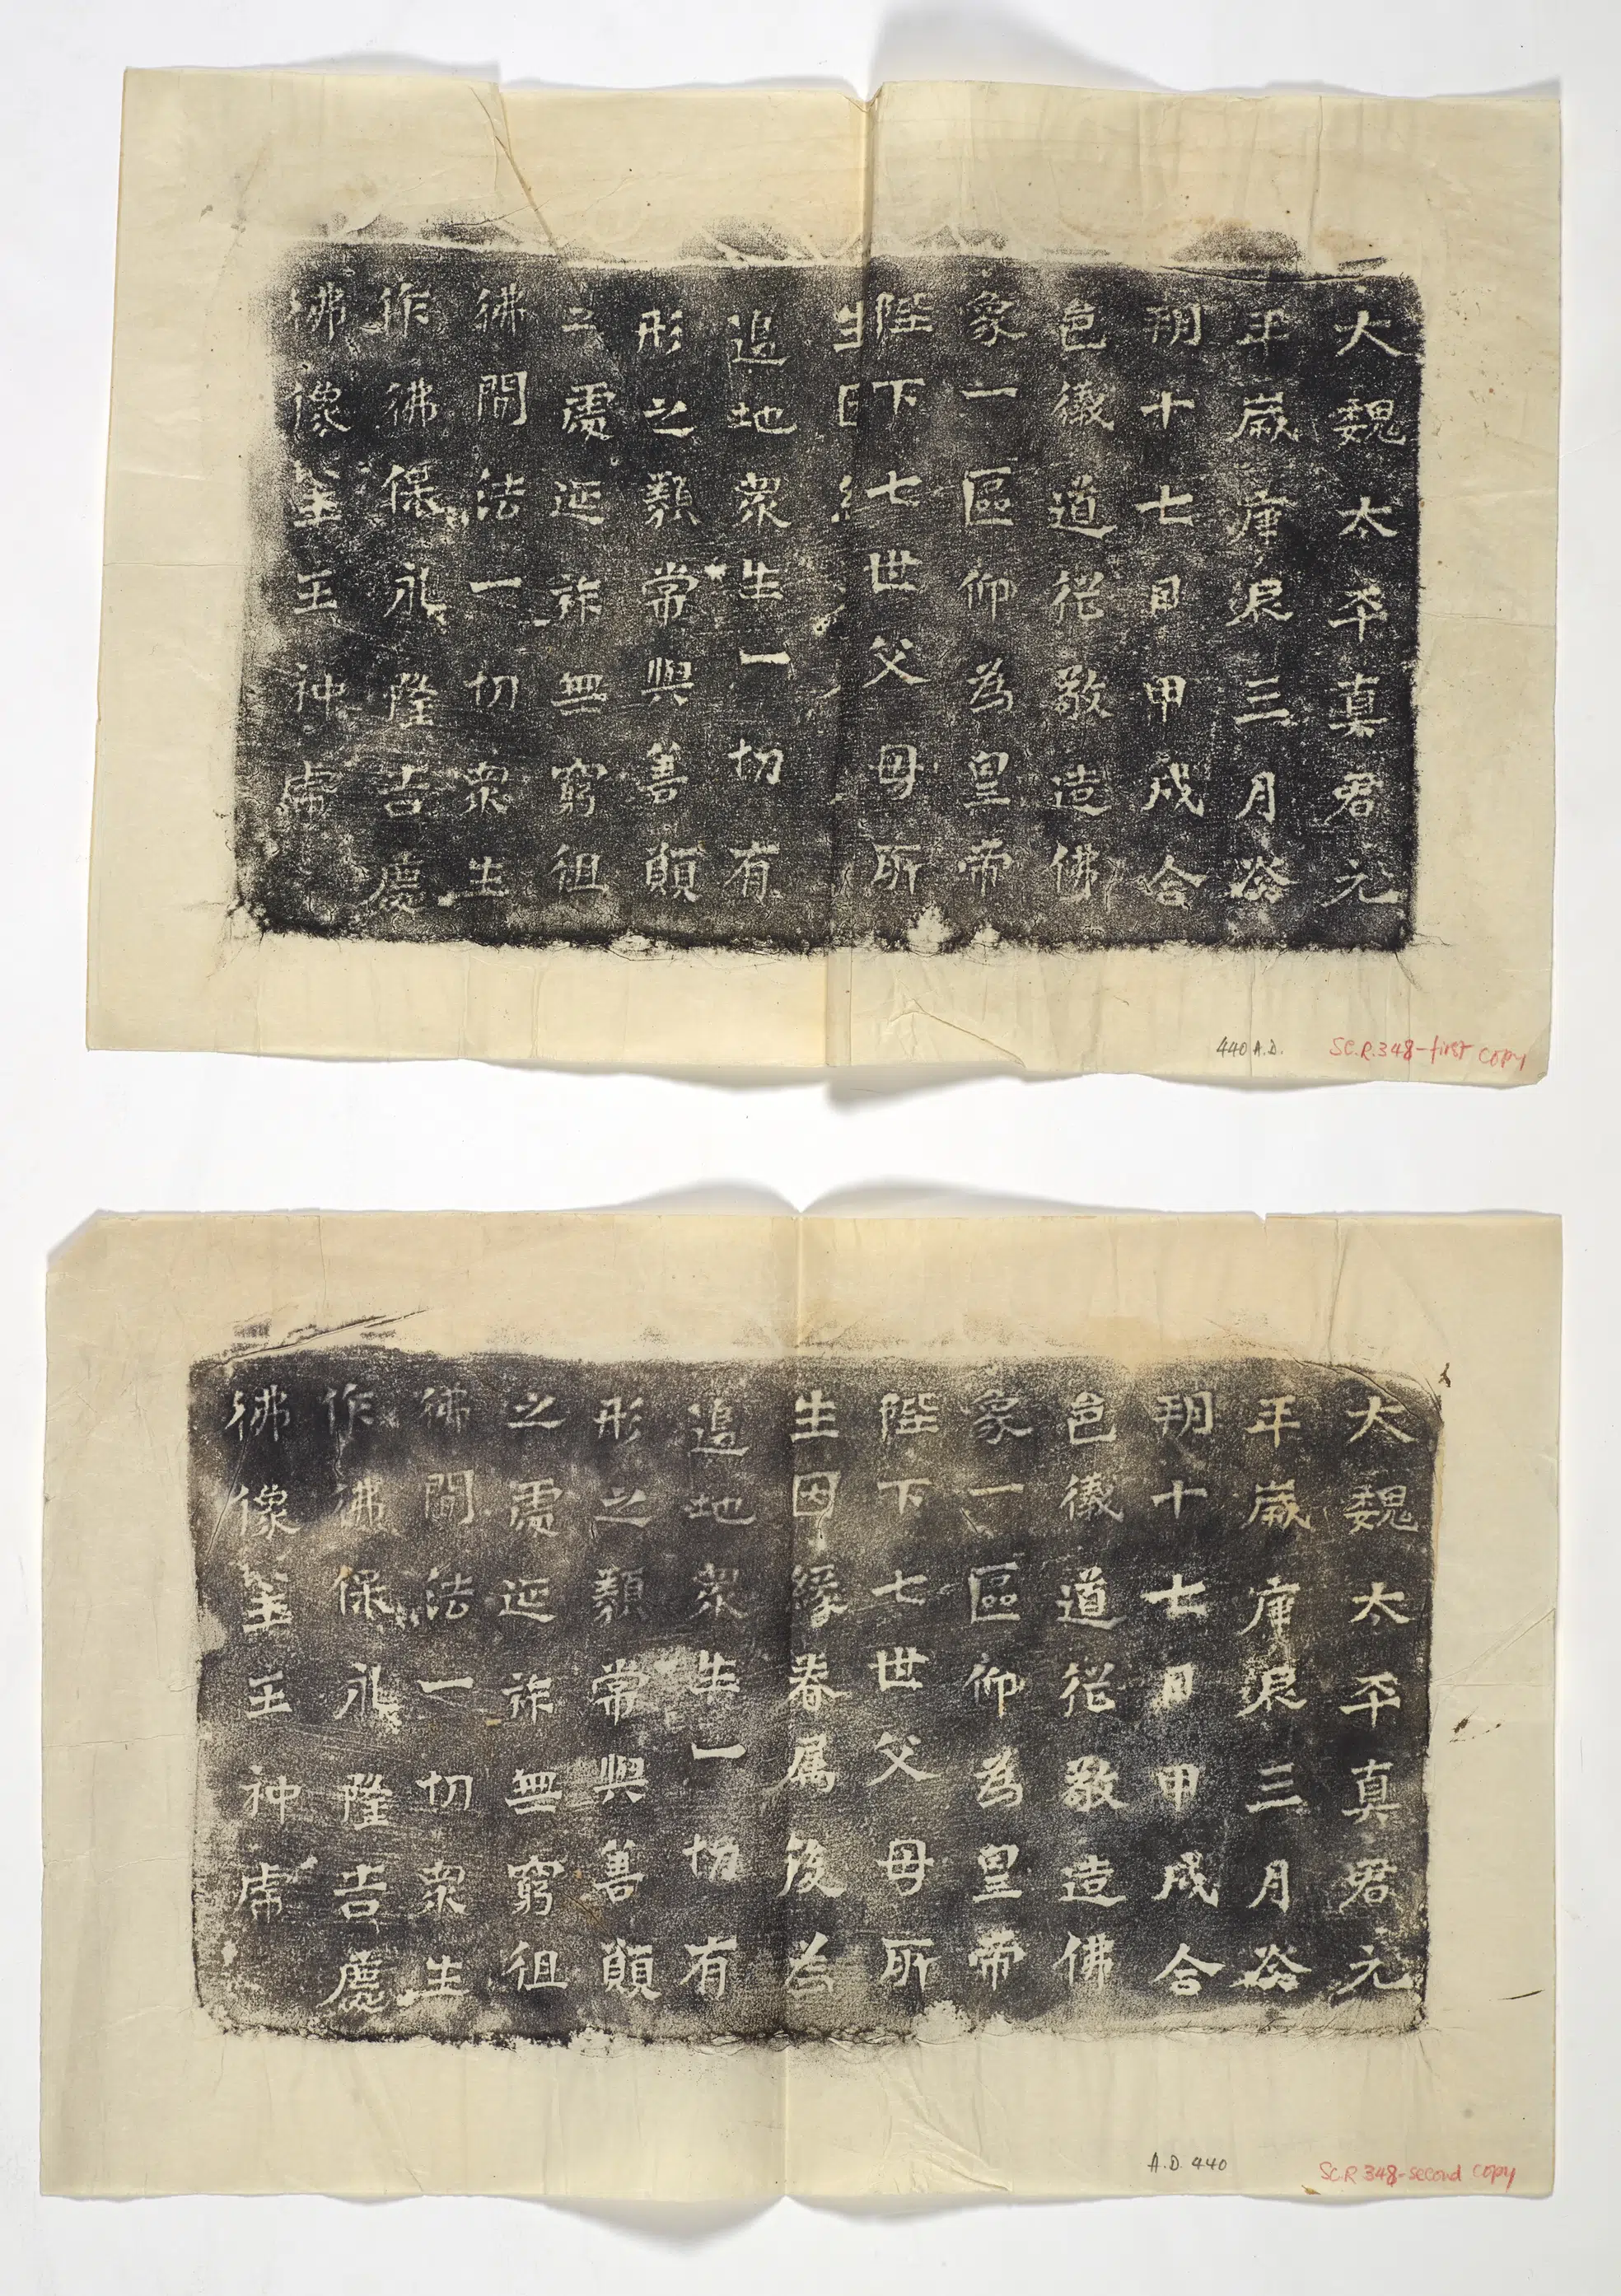 大魏太平真君元
年歲庚辰三月癸
朔十七日甲戌合
邑徽道從敬造佛
象一區仰為皇帝
陛下七世父母所
追地眾生一切有
形之類常與善願
之處延祚無窮徂
彿間法一切眾生
作彿保永隆吉慶
彿像主王神虎
440 A.D.
SC.R.348-first copy
大魏太平真君元
年歲庚辰三月癸
朔十七日甲戌合
邑徽道從敬造佛
象一區仰為皇帝
陛下七世父母所
生因緣眷属後為
追地眾生一切有
形之類常與善願
之處延祚無窮徂
彿間法一切眾生
作彿保永隆吉慶
彿像主王神虎
A.D. 440
SC.R 348-second copy